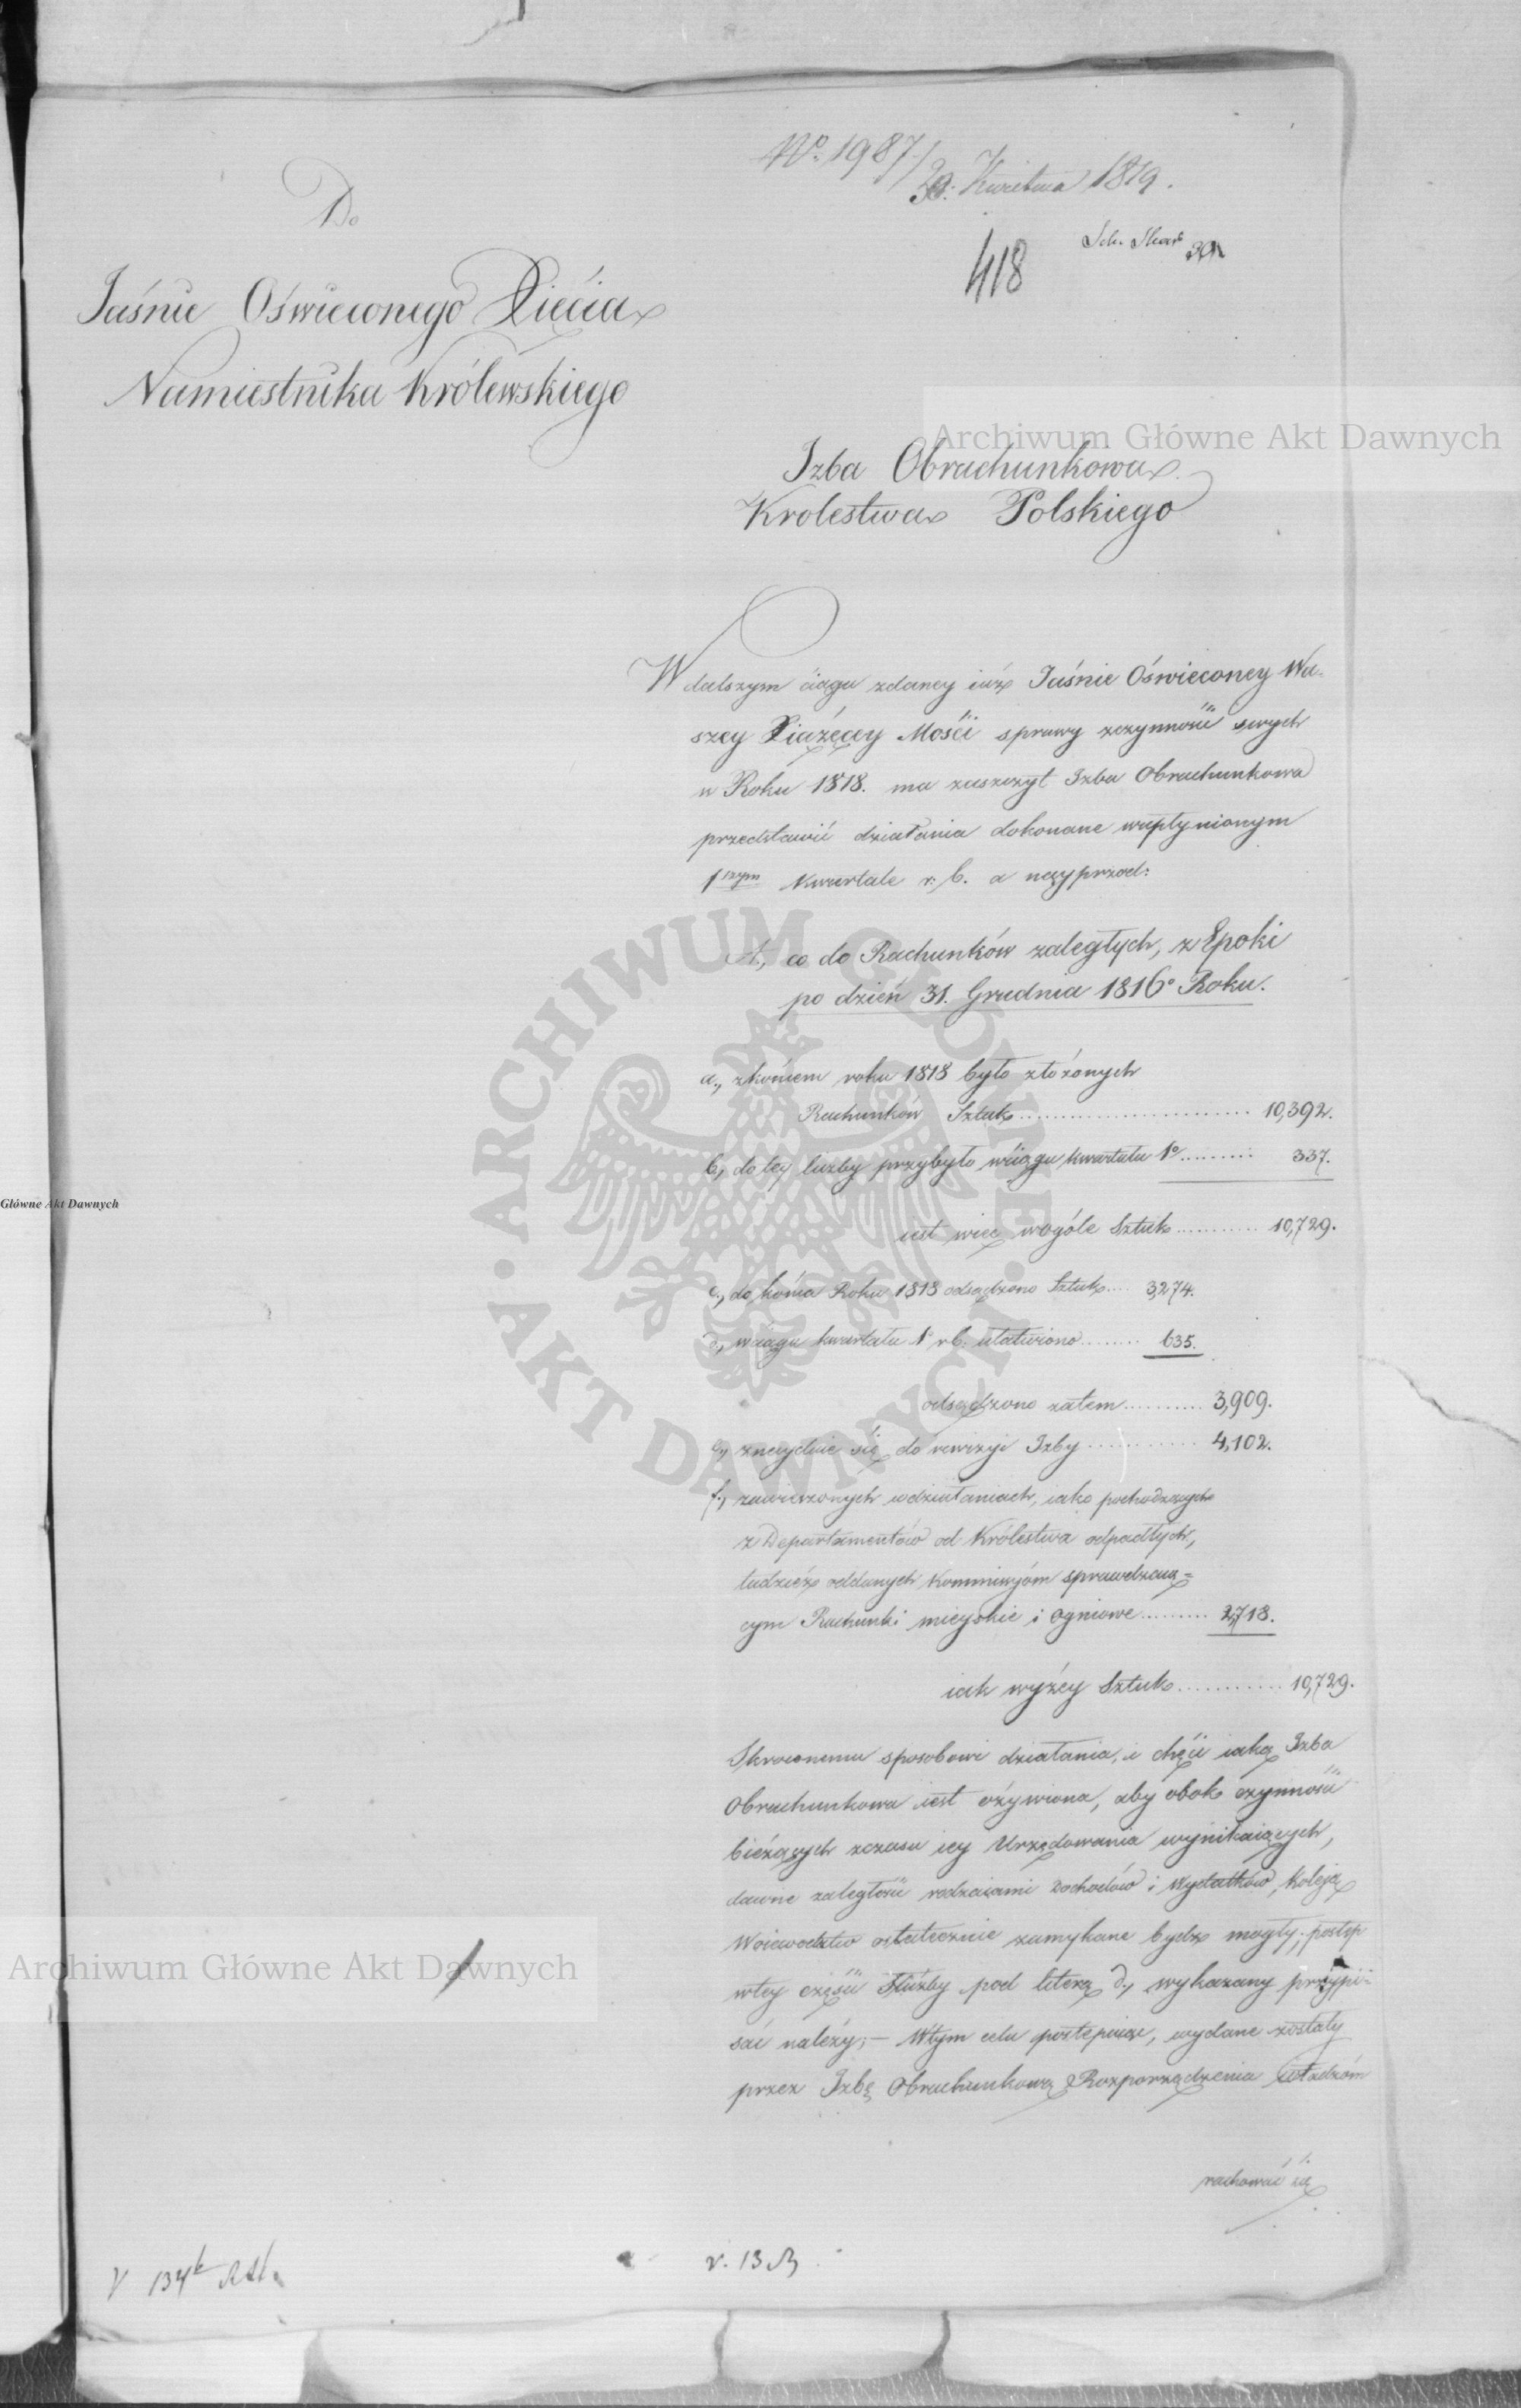 No. 1987./30. Kwietnia 1819.
418
Do
Jaśnie Oświeconego Xięcia
Namiestnika Królewskiego
Archiwum Główne Akt Dawnych
Izba Obrachunkowa
Krolestwa Polskiego
W dalszym ciągu zdaney iuż Jaśnie Oświeconey Wa-
szey Xiążęcey Mości sprawy z czynności swych
w Roku 1818. ma zaszczyt Izba Obrachunkowa
przedstawić działania dokonane w upłynionym
1szym kwartale r. b. a nayprzod:
A., co do Rachunków zaległych, z Epoki
po dzień 31. Grudnia 1816o Roku.
a., z końcem roku 1818 było złożonych
Rachunków Sztuk 10,392.
b., do tey liczby przybyło w ciągu kwartału 1o 337.
iest więc wogóle Sztuk 10,729.
c., do końca Roku 1818 odsądzono Sztuk 3,274.
d., w ciągu kwartału 1o r. b. ułatwiono 635.
odsądzono zatem 3,909.
e., znayduie się do rewizyi Izby 4,102.
f., zawieszonych w działaniach, iako pochodzących
z Departamentów od Królestwa odpadłych,
tudzież oddanych Kommissyjom sprawdzaią-
cym Rachunki mieyskie i ogniowe 2,718.
iak wyżey Sztuk 10,729.
Skroconemu sposobowi działania, i chęci iaką Izba
Obrachunkowa iest ożywiona, aby obok czynności
bieżących z czasu iey Urzędowania wynikaiących,
dawne zaległości rodzaiami Dochodów i Wydatków, koleją
Woiewodztw ostatecznie zamykane bydź mogły, postęp
w tey części służby pod literą d., wykazany przypi-
sać należy; – W tym celu postępuiąc, wydane zostały
przez Izbę Obrachunkową Rozporządzenia władzom
rachować się
Główne Akt Dawnych
Archiwum Główne Akt Dawnych
ARCHIWUM GŁÓWNE AKT DAWNYCH